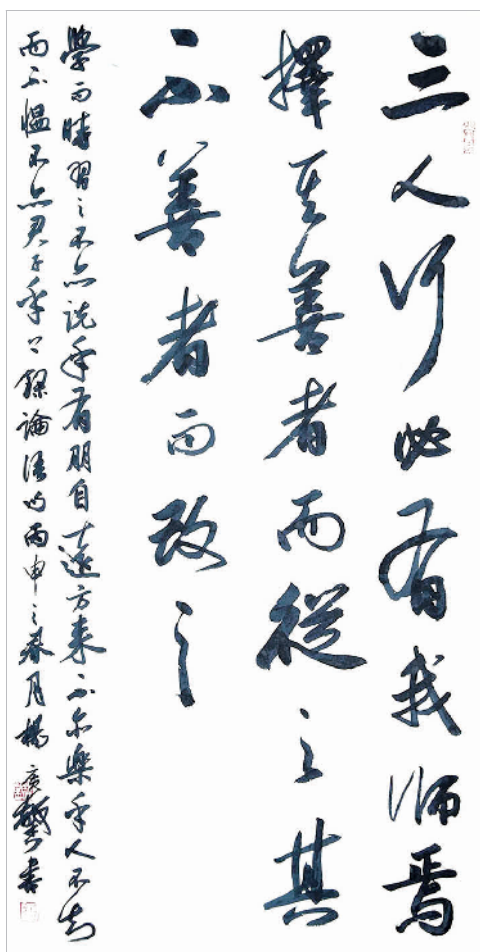 三人行必有我师焉
擇其善者而從之其
不善者而改之
學而時習之不亦説乎有朋自遠方来不亦樂乎人不知
而不愠不亦君子乎錄論語句丙申之春月楊广書